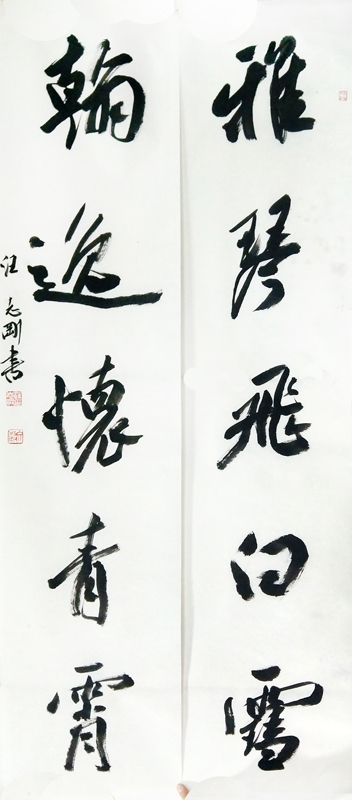 雅琴飛白雪
翰逸懷青霄
汪志剛書